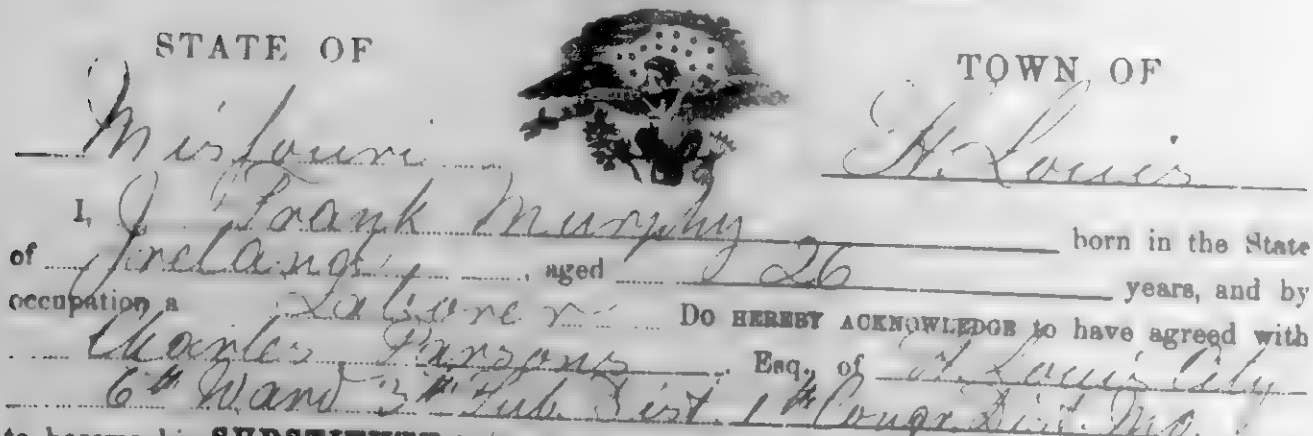 STATE OF
TOWN OF
Missouri
St. Louis
I, Frank Murphy born in the State
of Ireland, aged 26 years, and by
occupation a Laborer Do HEREBY ACKNOWLEDGE to have agreed with
Charles Parsons Esq., of St. Louis City
6th Ward 3th Sub. Dist. 1th Congr Dist. Mo.
SUBSTITUTE